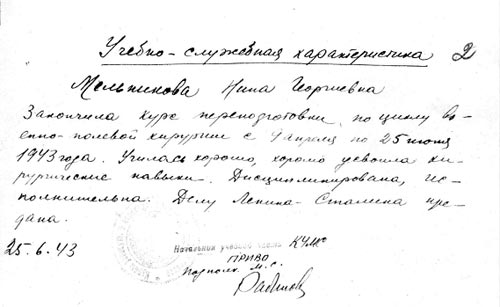 Учебно-служебная характеристика 2
Мельникова Нина Георгиевна
Закончила курс переподготовки по циклу во-
енно-полевой хирургии с 9 апреля по 25 июня
1943 года. Училась хорошо, хорошо усвоила хи-
рургические навыки. Дисциплинирована, ис-
полнительна. Делу Ленина-Сталина пре-
дана.
25.6.43
Начальник учебной части КУМС
ПРИВО
Подполк. м.с.